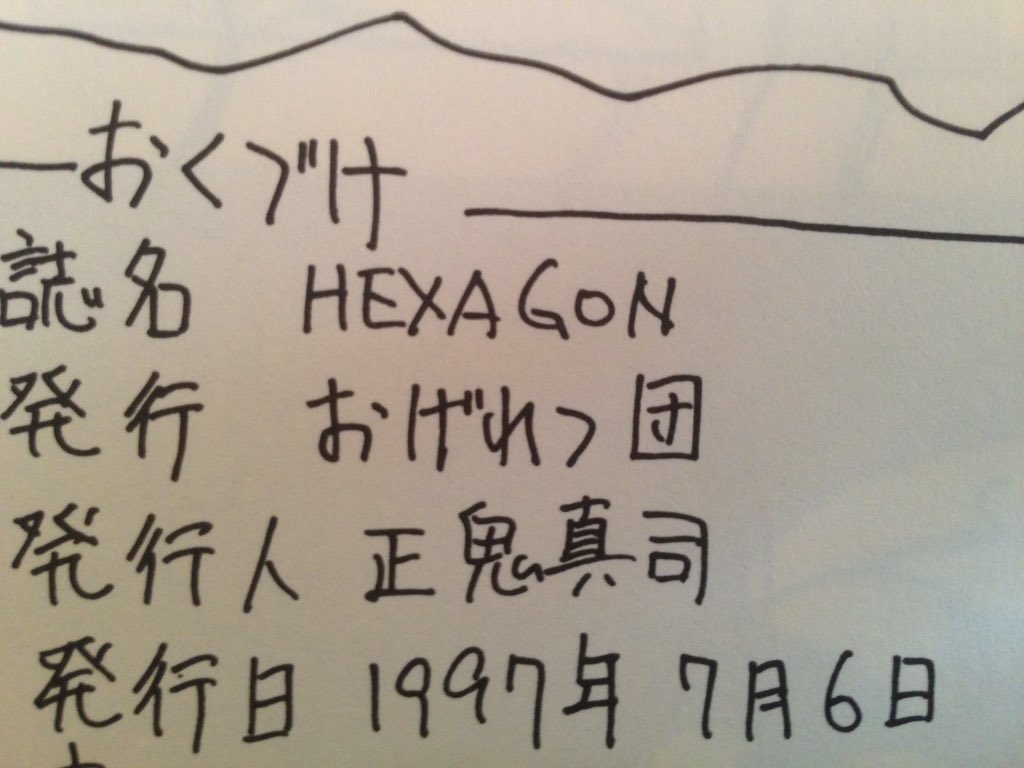 おくづけ
誌名 HEXAGON
発行 おげれつ団
発行人 正鬼真司
発行日 1997年 7月6日